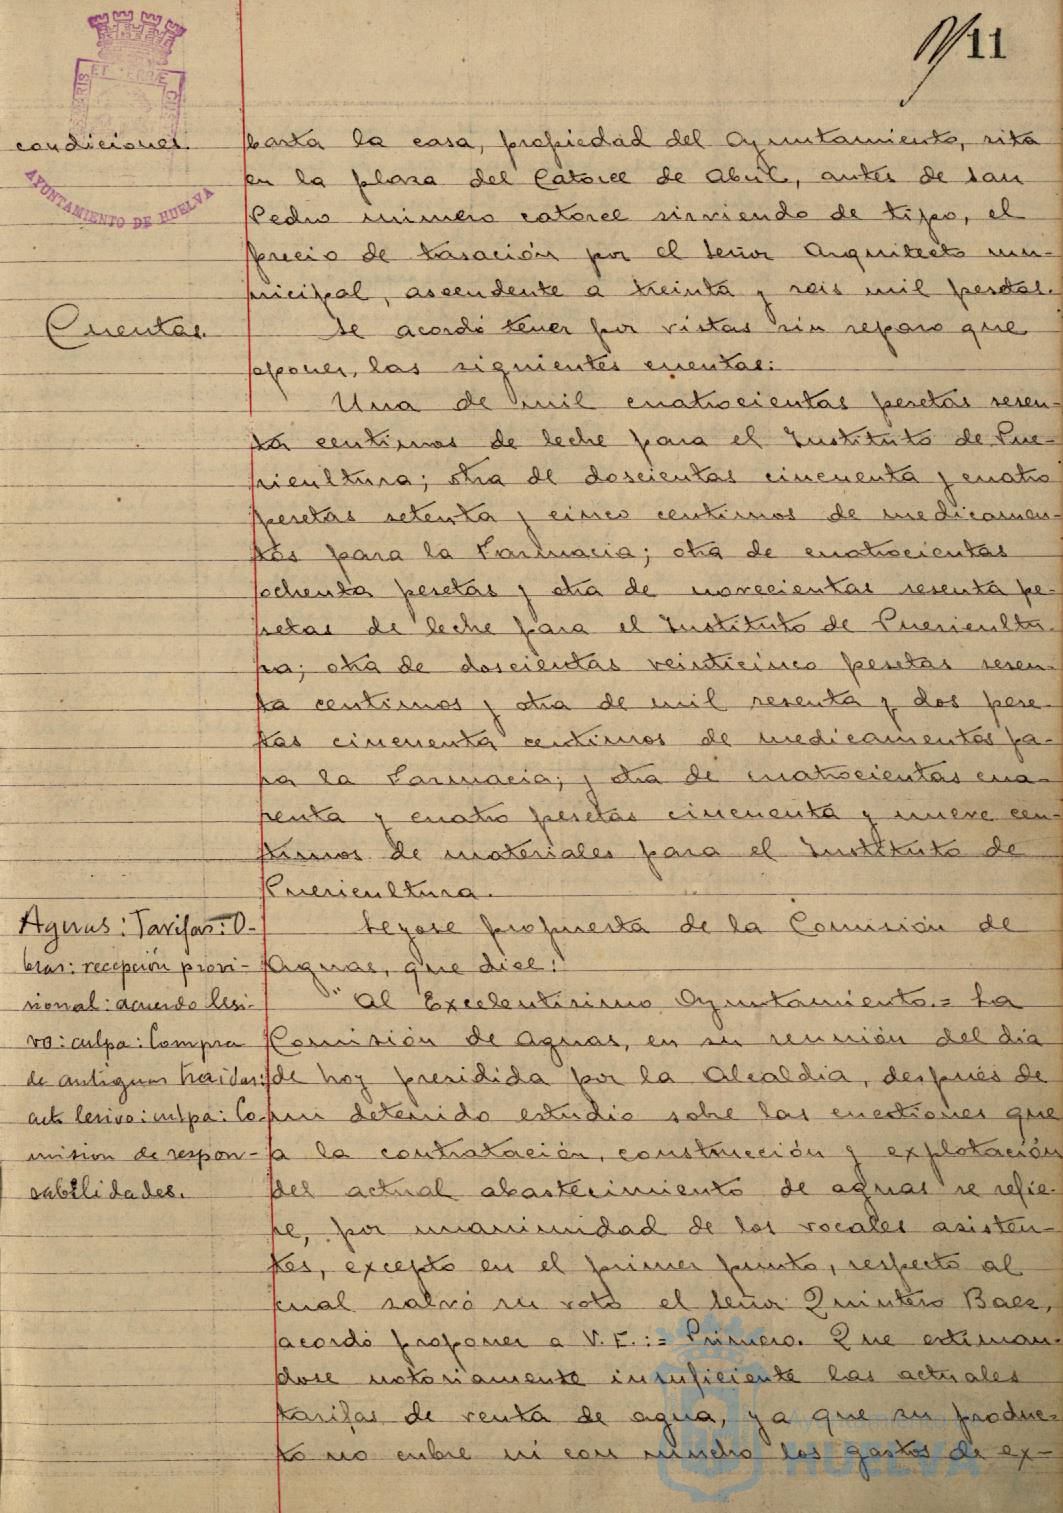 11
condiciones.
basta la casa, propiedad del Ayuntamiento, sita
en la plaza del Catorce de Abril, antes de San
Pedro número catorce sirviendo de tipo, el
precio de tasación por el Señor Arquitecto mu-
nicipal, ascendente a treinta y seis mil pesetas.
Cuentas.
Se acordó tener por vistas sin reparo que
oponer, las siguientes cuentas:
Una de mil cuatrocientas pesetas sesen-
ta centimos de leche para el Instituto de Pue-
ricultura; otra de doscientas cincuenta y cuatro
pesetas setenta y cinco centimos de medicamen-
tos para la Farmacia; otra de cuatrocientas
ochenta pesetas y otra de novecientas sesenta pe-
setas de leche para el Instituto de Puericultu-
ra; otra de doscientas veinticinco pesetas sesen-
ta centimos y otra de mil sesenta y dos pese-
tas cincuenta centimos de medicamentos pa-
ra la Farmacia; y otra de cuatrocientas cua-
renta y cuatro pesetas cincuenta y nueve cen-
timos de materiales para el Instituto de
Puericultura.
Aguas: Tarifas: O-
bras: recepción provi-
sional: acuerdo lesi-
vo: culpa: Compra
de antiguas traidas:
acto lesivo: culpa: Co-
mision de respon-
sabilidades.
Leyose propuesta de la Comisión de
Aguas, que dice:
"Al Excelentisimo Ayuntamiento.= La
Comisión de Aguas, en su reunión del dia
de hoy presidida por la Alcaldia, después de
un detenido estudio sobre las cuestiones que
a la contratación, construcción y explotación
del actual abastecimiento de aguas se refie-
re, por unanimidad de los vocales asisten-
tes, excepto en el primer punto, respecto al
cual salvó su voto el Señor Quintero Baez,
acordó proponer a V.E.:= Primero. Que estiman-
dose notoriamente insuficiente las actuales
tarifas de venta de agua, ya que su produc-
to no cubre ni con mucho los gastos de ex-
AYUNTAMIENTO DE HUELVA
HUELVA